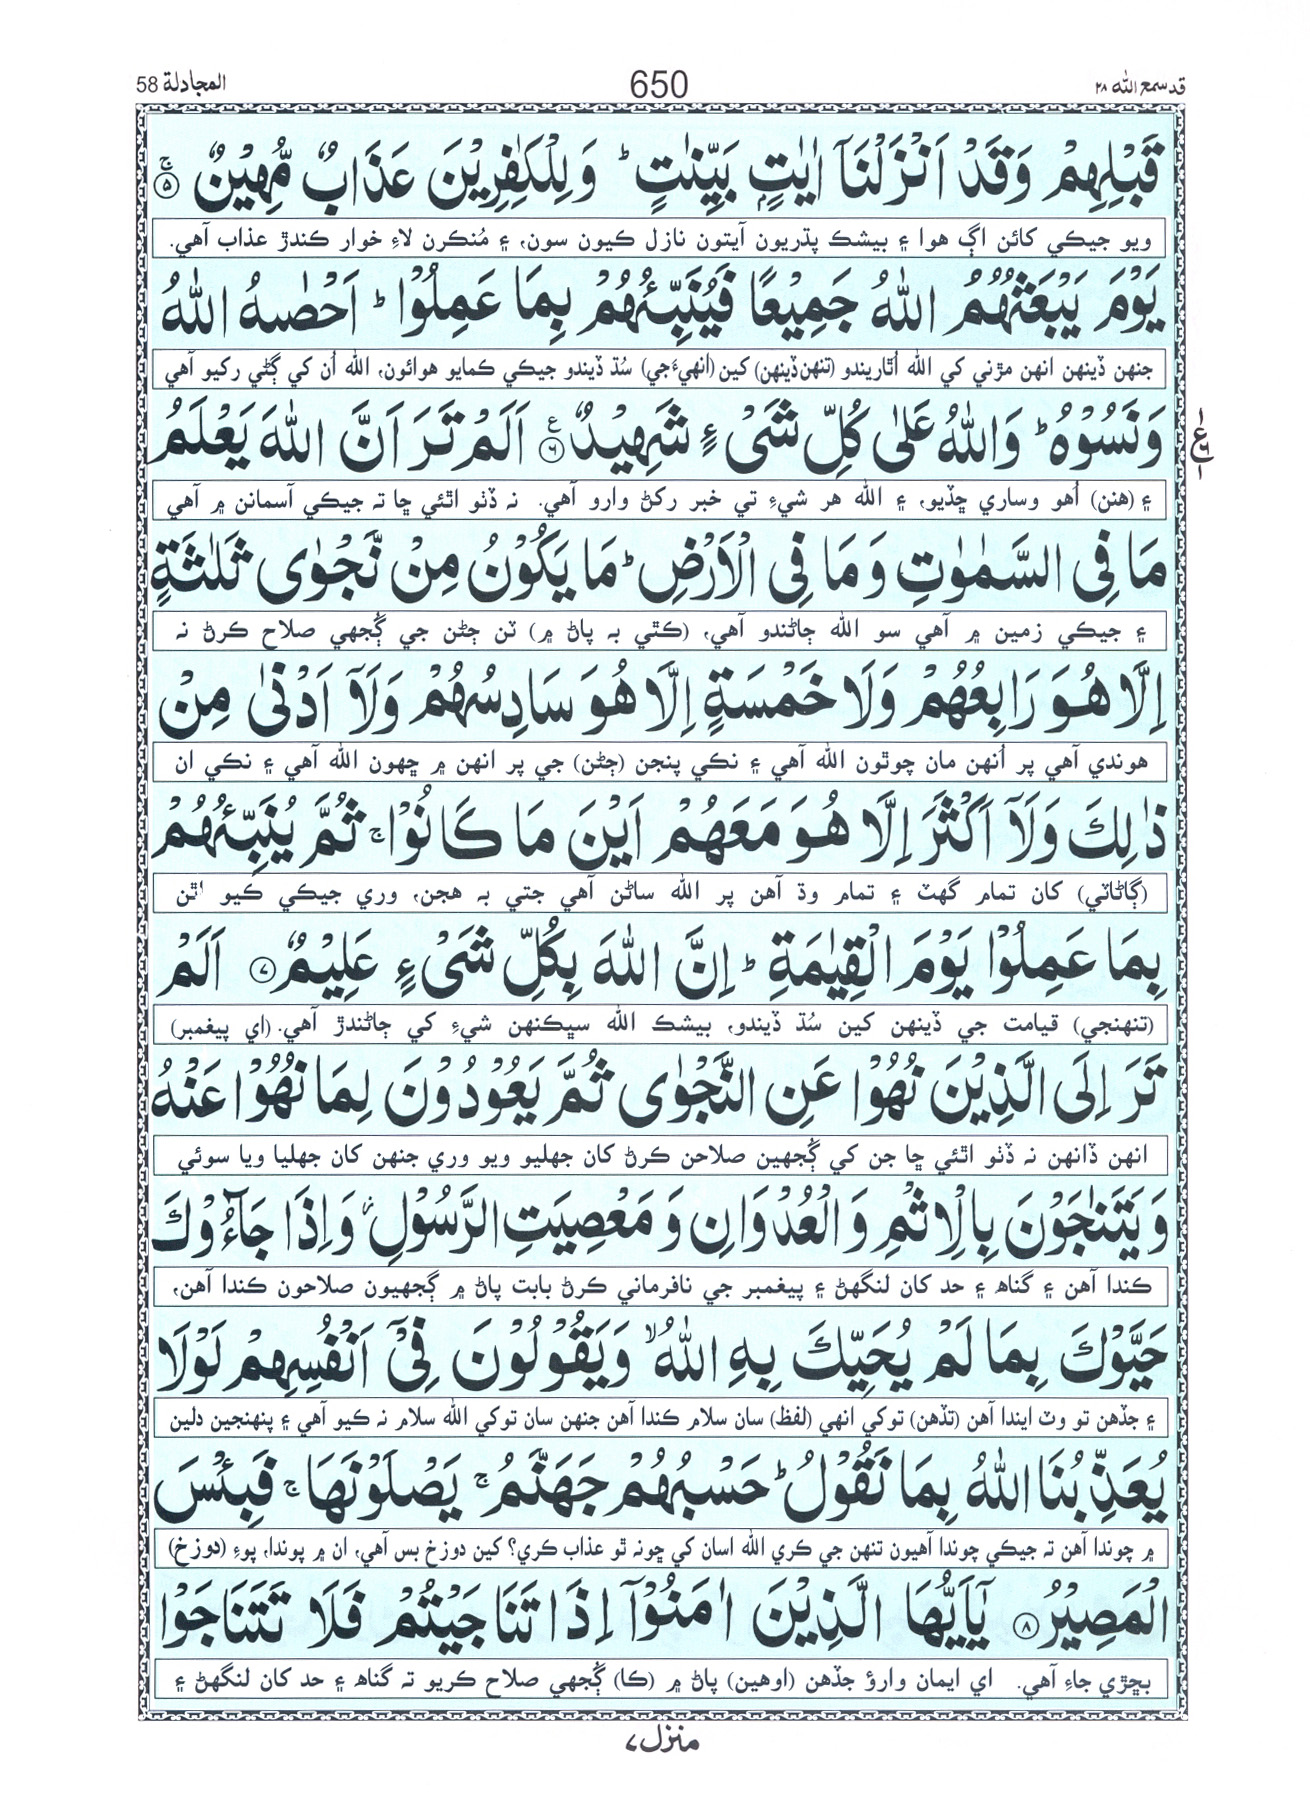 قد سمع الله ٢٨
650
المجادلة 58
قَبْلِهِمْ وَقَدْ اَنْزَلْنَآ اٰيٰتٍۭ بَيِّنٰتٍ ؕ وَلِلْكٰفِرِيْنَ عَذَابٌ مُّهِيْنٌ ۚ ﴿۵﴾
ويو جيڪي کائن اڳ هوا ۽ بيشڪ پڌريون آيتون نازل ڪيون سون، ۽ مُنڪرن لاءِ خوار ڪندڙ عذاب آهي.
يَوْمَ يَبْعَثُهُمُ اللّٰهُ جَمِيْعًا فَيُنَبِّئُهُمْ بِمَا عَمِلُوْا ؕ اَحْصٰىهُ اللّٰهُ
جنهن ڏينهن انهن مڙني کي الله اُٿاريندو (تنهن ڏينهن) کين (اُنهيءَ جي) سُڌ ڏيندو جيڪي ڪمايو هوائون، الله اُن کي ڳڻي رکيو آهي
وَنَسُوْهُ ؕ وَاللّٰهُ عَلٰى كُلِّ شَىْءٍ شَهِيْدٌ ﴿۶﴾ اَلَمْ تَرَ اَنَّ اللّٰهَ يَعْلَمُ
۽ (هنن) اُهو وساري ڇڏيو، ۽ الله هر شيءِ تي خبر رکڻ وارو آهي. نہ ڏٺو اٿئي ڇا تہ جيڪي آسمانن ۾ آهي
مَا فِى السَّمٰوٰتِ وَمَا فِى الْاَرْضِ ؕ مَا يَكُوْنُ مِنْ نَّجْوٰى ثَلٰثَةٍ
۽ جيڪي زمين ۾ آهي سو الله ڄاڻندو آهي، (ڪٿي بہ پاڻ ۾) ٽن ڄڻن جي ڳُجهي صلاح ڪرڻ نہ
اِلَّا هُوَ رَابِعُهُمْ وَلَا خَمْسَةٍ اِلَّا هُوَ سَادِسُهُمْ وَلَآ اَدْنٰى مِنْ
هوندي آهي پر اُنهن مان چوٿون الله آهي ۽ نڪي پنجن (ڄڻن) جي پر انهن ۾ ڇهون الله آهي ۽ نڪي ان
ذٰلِكَ وَلَآ اَكْثَرَ اِلَّا هُوَ مَعَهُمْ اَيْنَ مَا كَانُوْا ۚ ثُمَّ يُنَبِّئُهُمْ
(ڳاڻاٽي) کان تمام گهٽ ۽ تمام وڌ آهن پر الله ساڻن آهي جتي بہ هجن، وري جيڪي ڪيو اٿن
بِمَا عَمِلُوْا يَوْمَ الْقِيٰمَةِ ؕ اِنَّ اللّٰهَ بِكُلِّ شَىْءٍ عَلِيْمٌ ﴿۷﴾ اَلَمْ
(تنهنجي) قيامت جي ڏينهن کين سُڌ ڏيندو، بيشڪ الله سڀڪنهن شيءِ کي ڄاڻندڙ آهي. (اي پيغمبر)
تَرَ اِلَى الَّذِيْنَ نُهُوْا عَنِ النَّجْوٰى ثُمَّ يَعُوْدُوْنَ لِمَا نُهُوْا عَنْهُ
انهن ڏانهن نہ ڏٺو اٿئي ڇا جن کي ڳُجهين صلاحن ڪرڻ کان جهليو ويو وري جنهن کان جهليا ويا سوئي
وَيَتَنٰجَوْنَ بِالْاِثْمِ وَالْعُدْوَانِ وَمَعْصِيَتِ الرَّسُوْلِ ز وَاِذَا جَآءُوْكَ
ڪندا آهن ۽ گناهہ ۽ حد کان لنگهڻ ۽ پيغمبر جي نافرماني ڪرڻ بابت پاڻ ۾ ڳجهيون صلاحون ڪندا آهن،
حَيَّوْكَ بِمَا لَمْ يُحَيِّكَ بِهِ اللّٰهُ ۙ وَيَقُوْلُوْنَ فِىْٓ اَنْفُسِهِمْ لَوْلَا
۽ جڏهن تو وٽ ايندا آهن (تڏهن) توکي انهي (لفظ) سان سلام ڪندا آهن جنهن سان توکي الله سلام نہ ڪيو آهي ۽ پنهنجين دلين
يُعَذِّبُنَا اللّٰهُ بِمَا نَقُوْلُ ؕ حَسْبُهُمْ جَهَنَّمُ ۚ يَصْلَوْنَهَا ۚ فَبِئْسَ
۾ چوندا آهن تہ جيڪي چوندا آهيون تنهن جي ڪري الله اسان کي ڇونہ ٿو عذاب ڪري؟ کين دوزخ بس آهي، ان ۾ پوندا، پوءِ (دوزخ)
الْمَصِيْرُ ﴿۸﴾ يٰٓاَيُّهَا الَّذِيْنَ اٰمَنُوْٓا اِذَا تَنَاجَيْتُمْ فَلَا تَتَنَاجَوْا
بڇڙي جاءِ آهي. اي ايمان وارؤ جڏهن (اوهين) پاڻ ۾ (ڪا) ڳُجهي صلاح ڪريو تہ گناهہ ۽ حد کان لنگهڻ ۽
منزل ٧